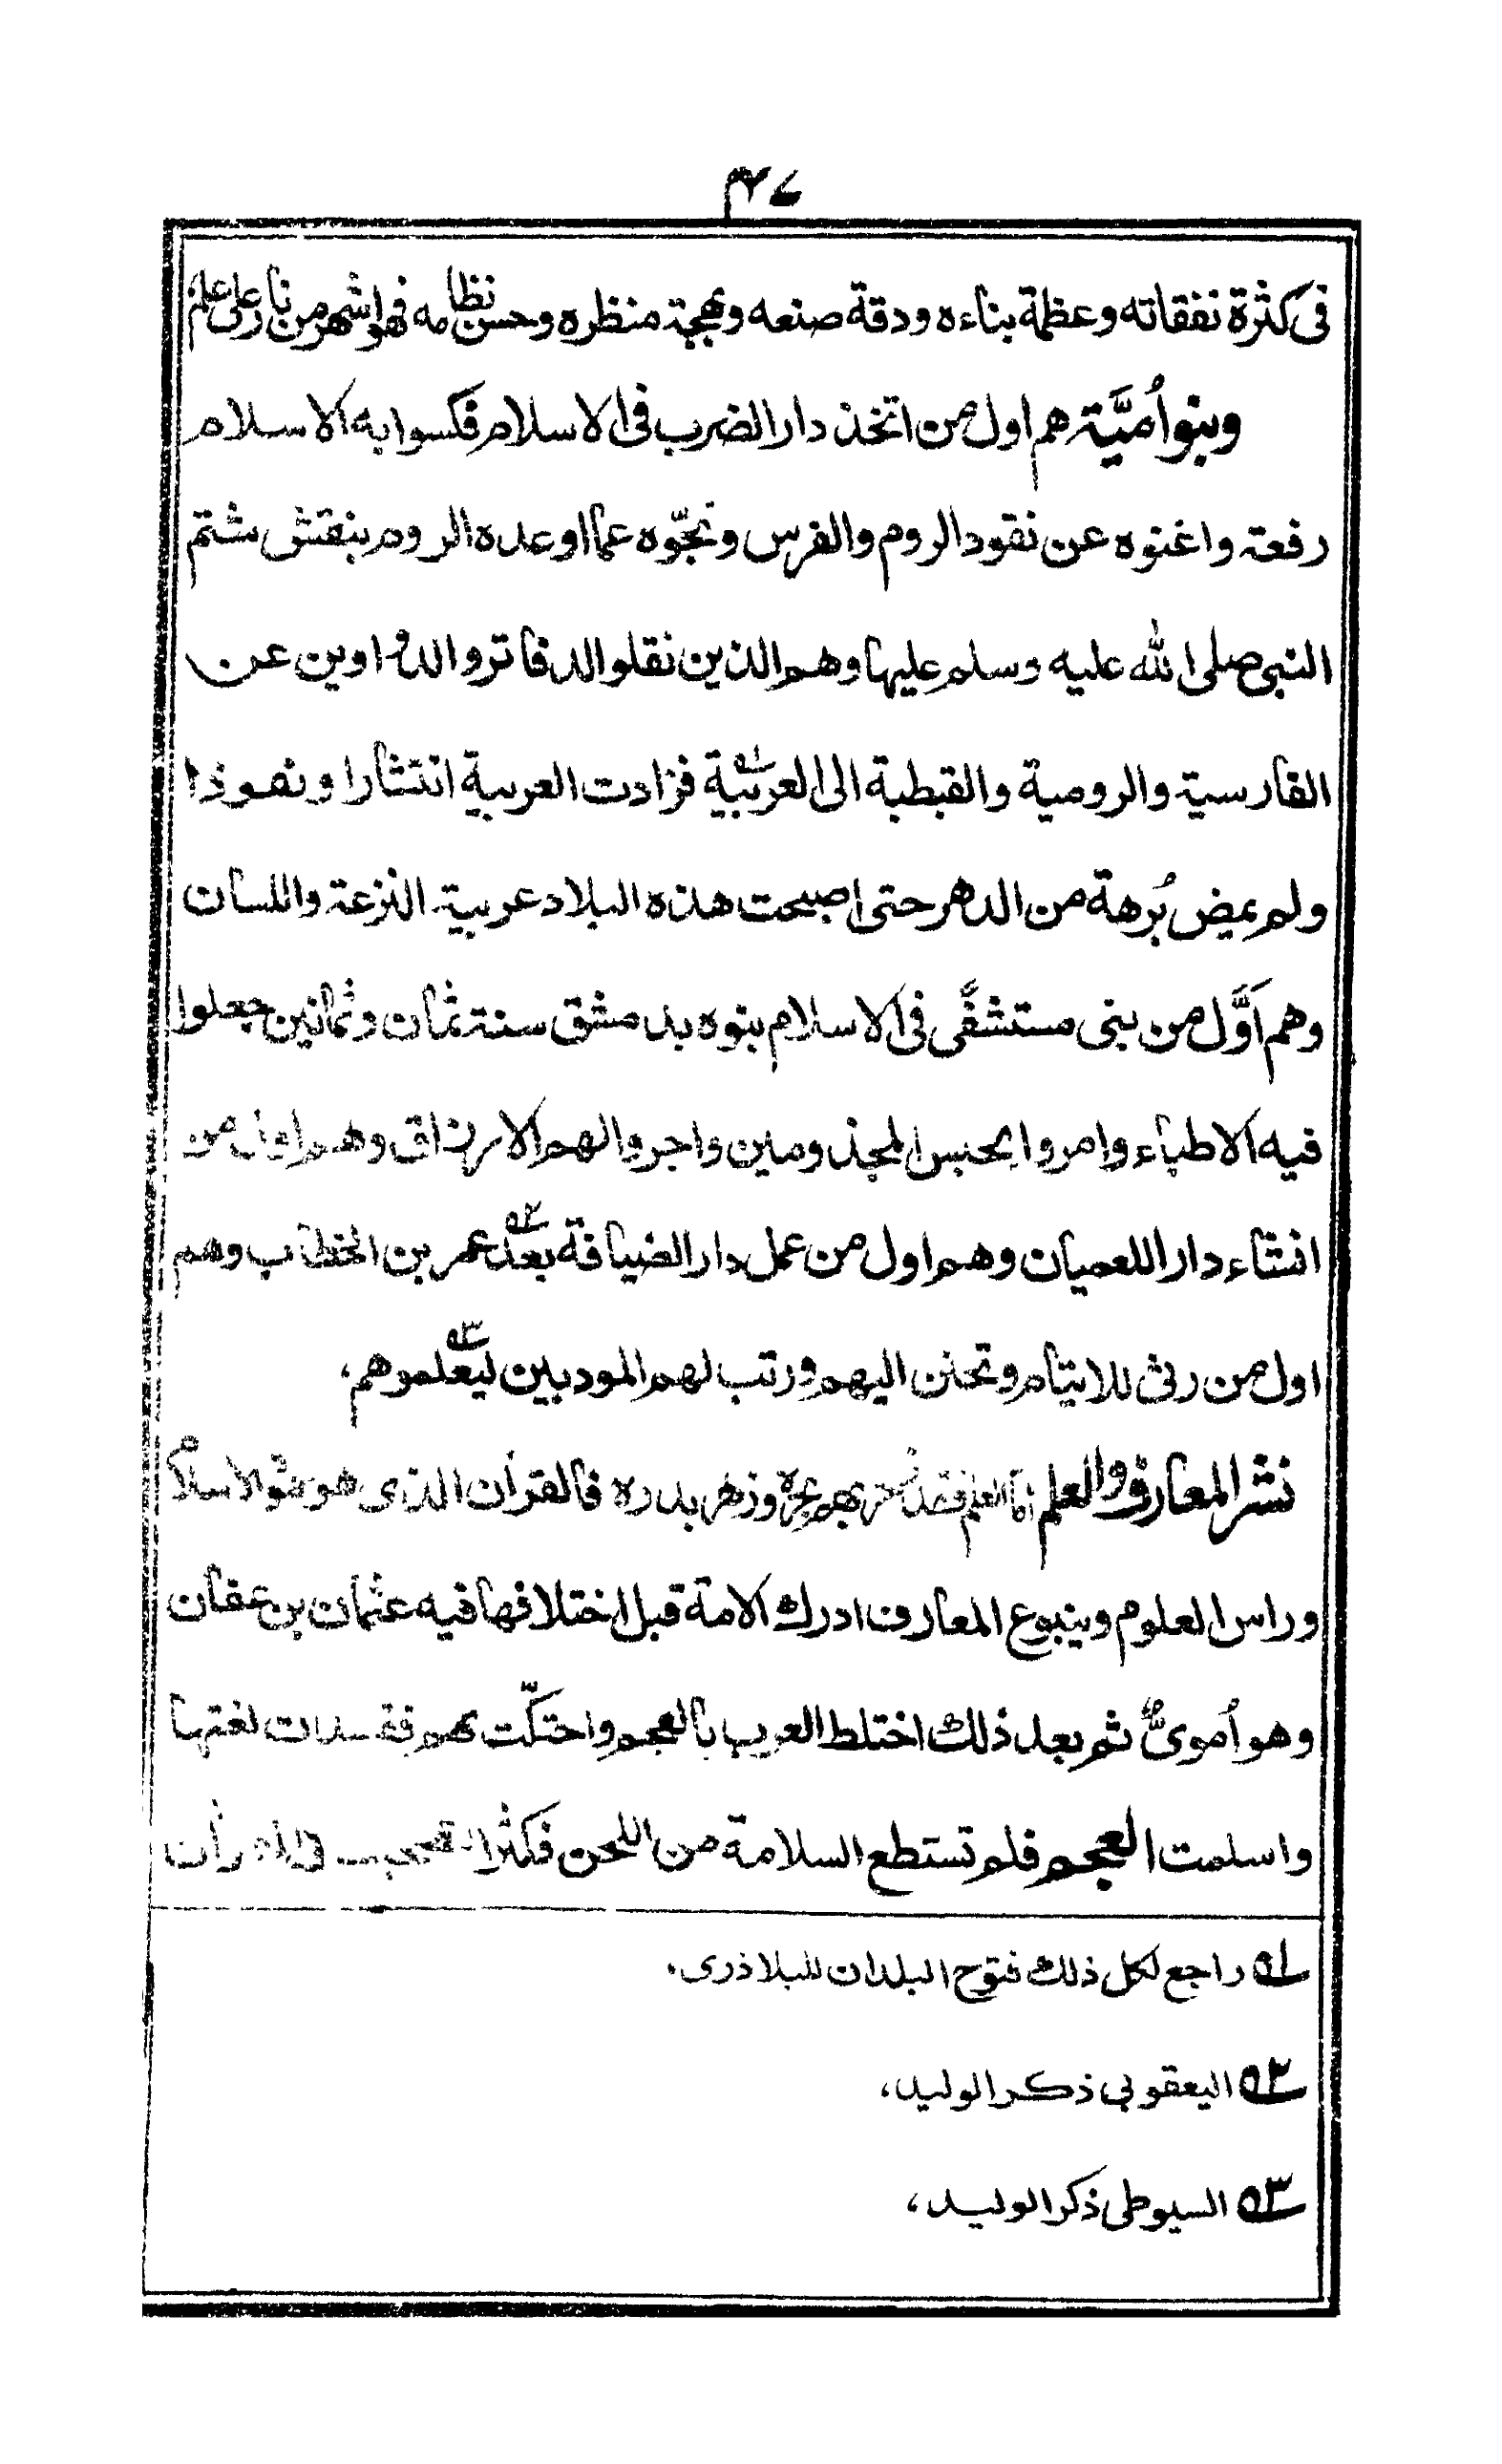 ٤٧
فى كثرة نفقاته وعظمة بناءه ودقة صنعه وبهجة منظره وحسن نظامه فهو اشهر من نار على علم
وبنو اُميَّة هم اول من اتخذ دار الضرب فى الاسلام فكسوا به الاسلام
رفعة واغنوه عن نقود الروم والفرس ونجّوه عما اوعده الروم بنقش شتم
النبى صلى الله عليه وسلم عليها وهم الذين نقلوا الدفاتر والدواوين عن
الفارسية والرومية والقبطية الى العربية ١ه فزادت العربية انتشارا ونفوذا
ولم يمض بُرهة من الدهر حتى اصبحت هذه البلاد عربية النزعة واللسان
وهم اَوَّل من بنى مستشفًى فى الاسلام بنوه بدمشق سنة ثمان وثمانين جعلوا
فيه الاطباء وامروا بحبس المجذومين واجروا لهم الارزاق وهم اول من
انشاء دارا للعميان وهم اول من عمل دار الضيافة بعد ٢ه عمر بن الخطاب وهم
اول من رثى للايتام وتحنن اليهم ورتب لهم المودبين ليعلموهم ٣ه،
نشر المعارف والعلم اما العلم فقد بهم بحره وزهر بدره فالقرآن الذى هو الاسلام
وراس العلوم وينبوع المعارف ادرك الامة قبل اختلافها فيه عثمان بن عفان
وهو اُموىٌّ ثم بعد ذلك اختلط العرب بالعجم واحتكّت بهم ففسدت لغتها
واسلمت العجم فلم تستطع السلامة من اللحن فكثر التصحيف فى القرآن
١ه راجع لكل ذلك فتوح البلدان للبلاذرى.
٢ه اليعقوبى ذكر الوليد،
٣ه السيوطى ذكر الوليد،